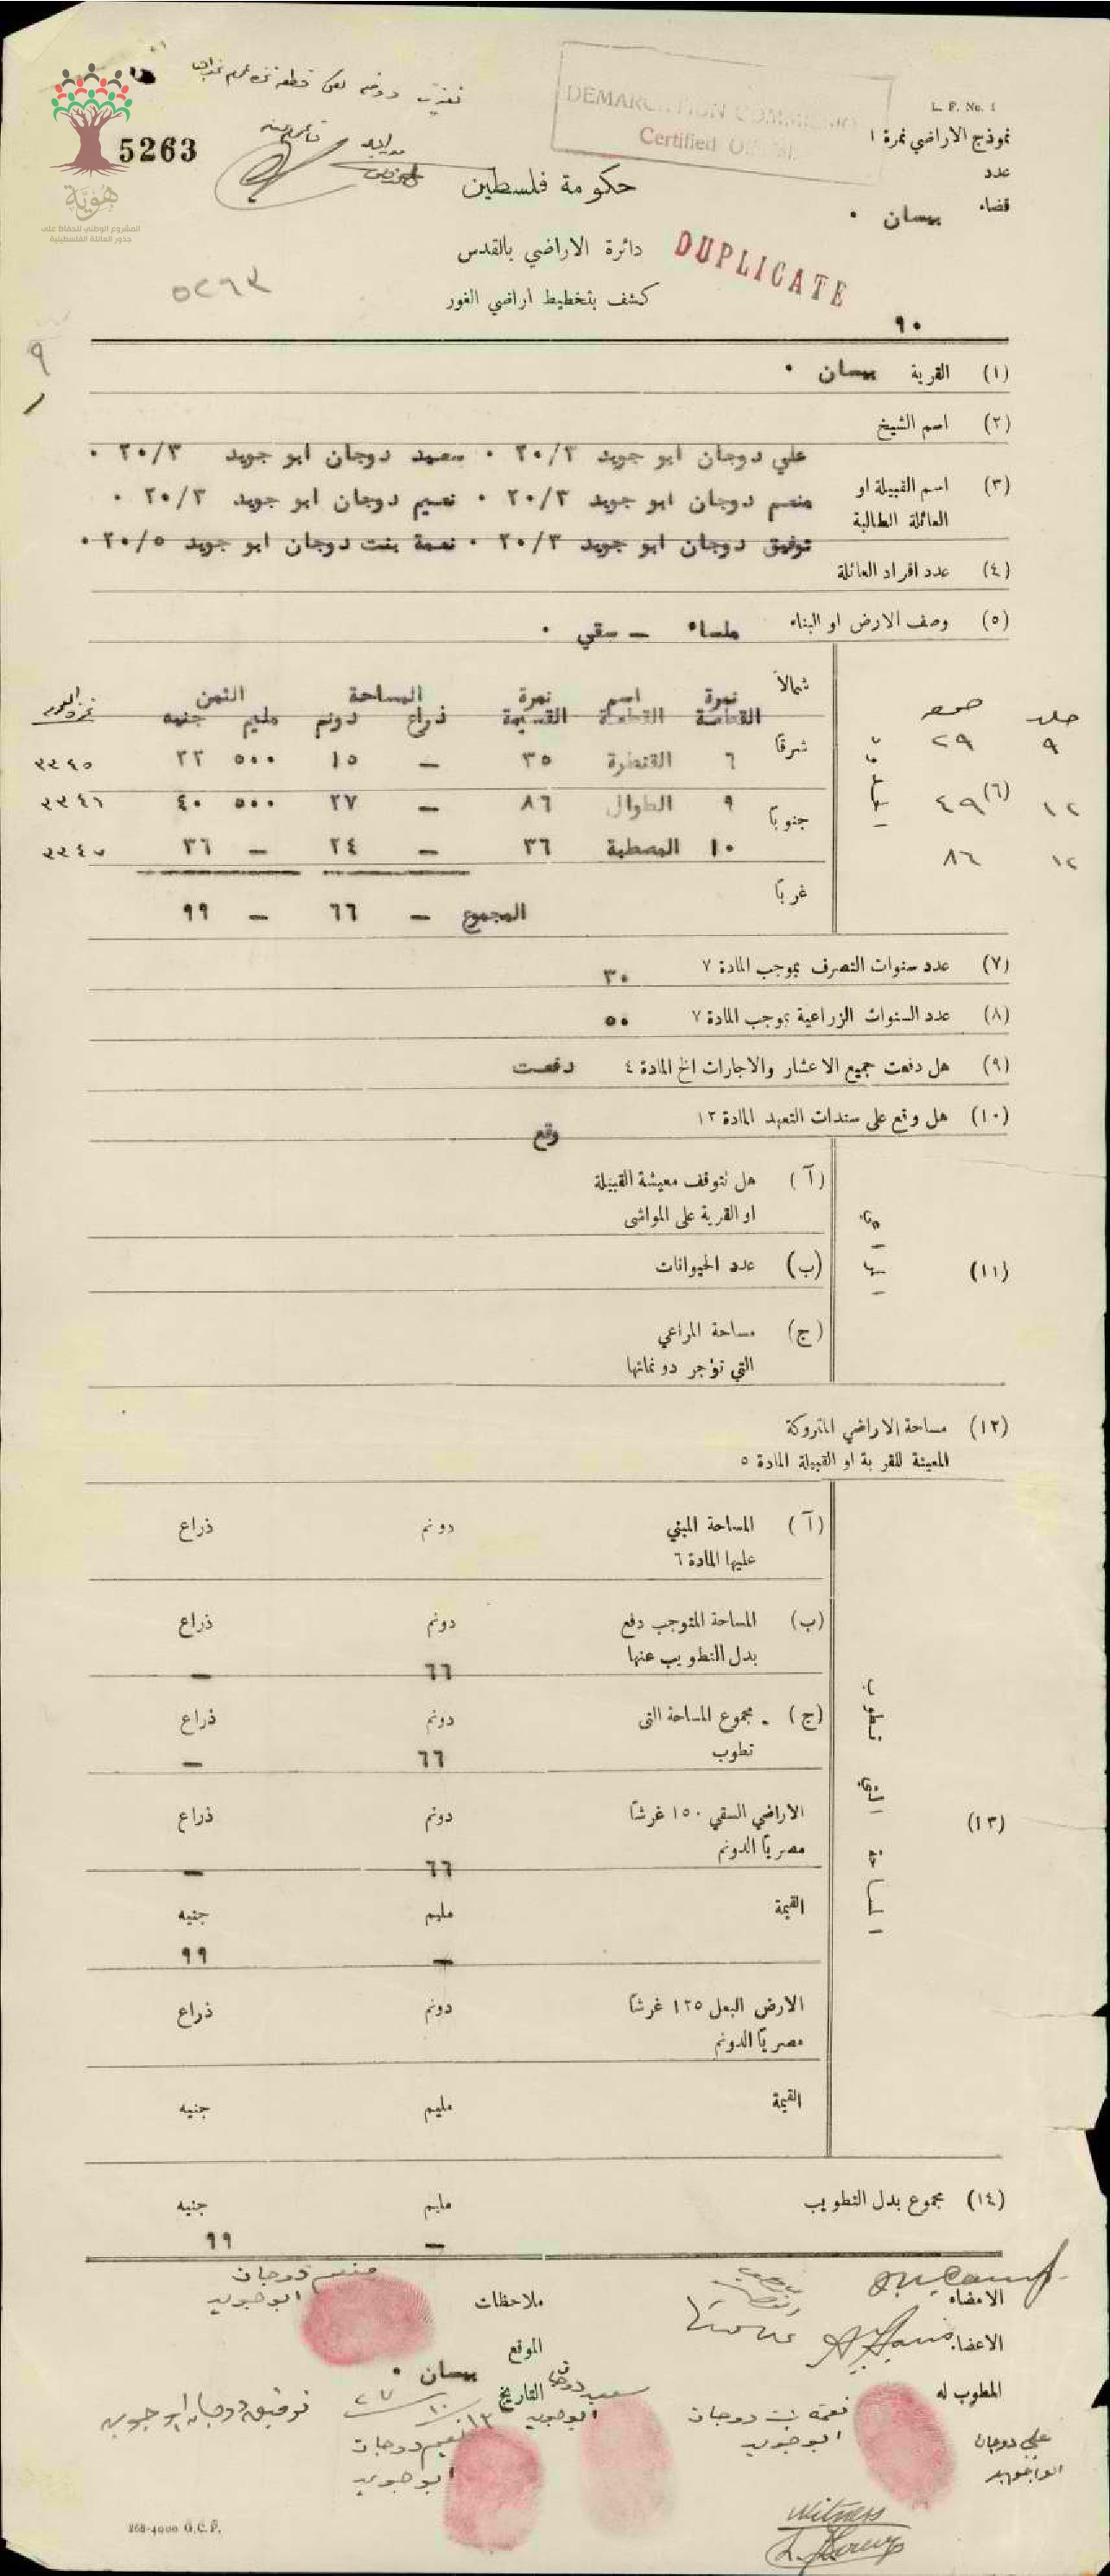 L. P. No. 1
نموذج الاراضي نمرة ١
عدد
قضاء بيسان ٠
DEMARCATION COMMISSION
Certified
5263
هوية
المشروع الوطني للحفاظ على
جذور العائلة الفلسطينية
حكومة فلسطين
دائرة الاراضي بالقدس
DUPLICATE
كشف بتخطيط اراضي الغور
٥٢٦٣
٩٠
٩
(١) القرية بيسان ٠
(٢) اسم الشيخ
(٣) اسم القبيلة او العائلة الطالبة
علي دوجان ابو جويد ٢٠/٣ ٠ سعيد دوجان ابو جويد ٢٠/٣ ٠
منعم دوجان ابو جويد ٢٠/٣ ٠ نعيم دوجان ابو جويد ٢٠/٣ ٠
توفيق دوجان ابو جويد ٢٠/٣ ٠ نعمة بنت دوجان ابو جويد ٢٠/٥ ٠
(٤) عدد افراد العائلة
(٥) وصف الارض او البناء ملساء — سقي ٠
جلد صحيفه
(٦) الحدود
شمالاً
شرقاً
جنوباً
غرباً
نمرة القطعة اسم القطعة نمرة القسيمة المساحة ذراع دونم الثمن مليم جنيه
٩ ٢٩ ٦ القنطرة ٣٥ — ١٥ ٥٠٠ ٢٢ ٣٣٤٥
١٢ ٤٩ ٩ الطوال ٨٦ — ٢٧ ٥٠٠ ٤٠ ٣٣٤٦
١٢ ٨٦ ١٠ المصطبة ٣٦ — ٢٤ — ٣٦
المجموع — ٦٦ — ٩٩
(٧) عدد سنوات التصرف بموجب المادة ٧ ٣٠
(٨) عدد السنوات الزراعية بموجب المادة ٧ ٥٠
(٩) هل دفعت جميع الاعشار والاجارات الخ المادة ٤ دفعت
(١٠) هل وقع على سندات التعهد المادة ١٢ وقع
(١١)
(آ) هل تتوقف معيشة القبيلة
او القرية على المواشي
(ب) عدد الحيوانات
(ج) مساحة المراعي
التي تؤجر دونماتها
(١٢) مساحة الاراضي المتروكة
المعينة للقرية او القبيلة المادة ٥
(١٣) المساحة التي تطوب
(آ) المساحة المبني دونم ذراع
عليها المادة ٦
(ب) المساحة المتوجب دفع دونم ذراع
بدل التطويب عنها ٦٦ —
(ج) مجموع المساحة التي دونم ذراع
تطوب ٦٦ —
الاراضي السقي ١٥٠ غرشاً دونم ذراع
مصرياً الدونم ٦٦ —
القيمة مليم جنيه
— ٩٩
الارض البعل ١٢٥ غرشاً دونم ذراع
مصرياً الدونم
القيمة مليم جنيه
(١٤) مجموع بدل التطويب مليم جنيه
— ٩٩
الامضاء
الاعضاء
المطوب له
ملاحظات
الموقع بيسان ٠
التاريخ ١٣/١٠/٢٧
منعم دوجان
ابو جويد
سعيد دوجان
ابو جويد
توفيق دوجان ابو جويد
نعيم دوجان
ابو جويد
نعمة بنت دوجان
ابو جويد
علي دوجان
ابو جويد
Witness
268-4000 G.C.P.